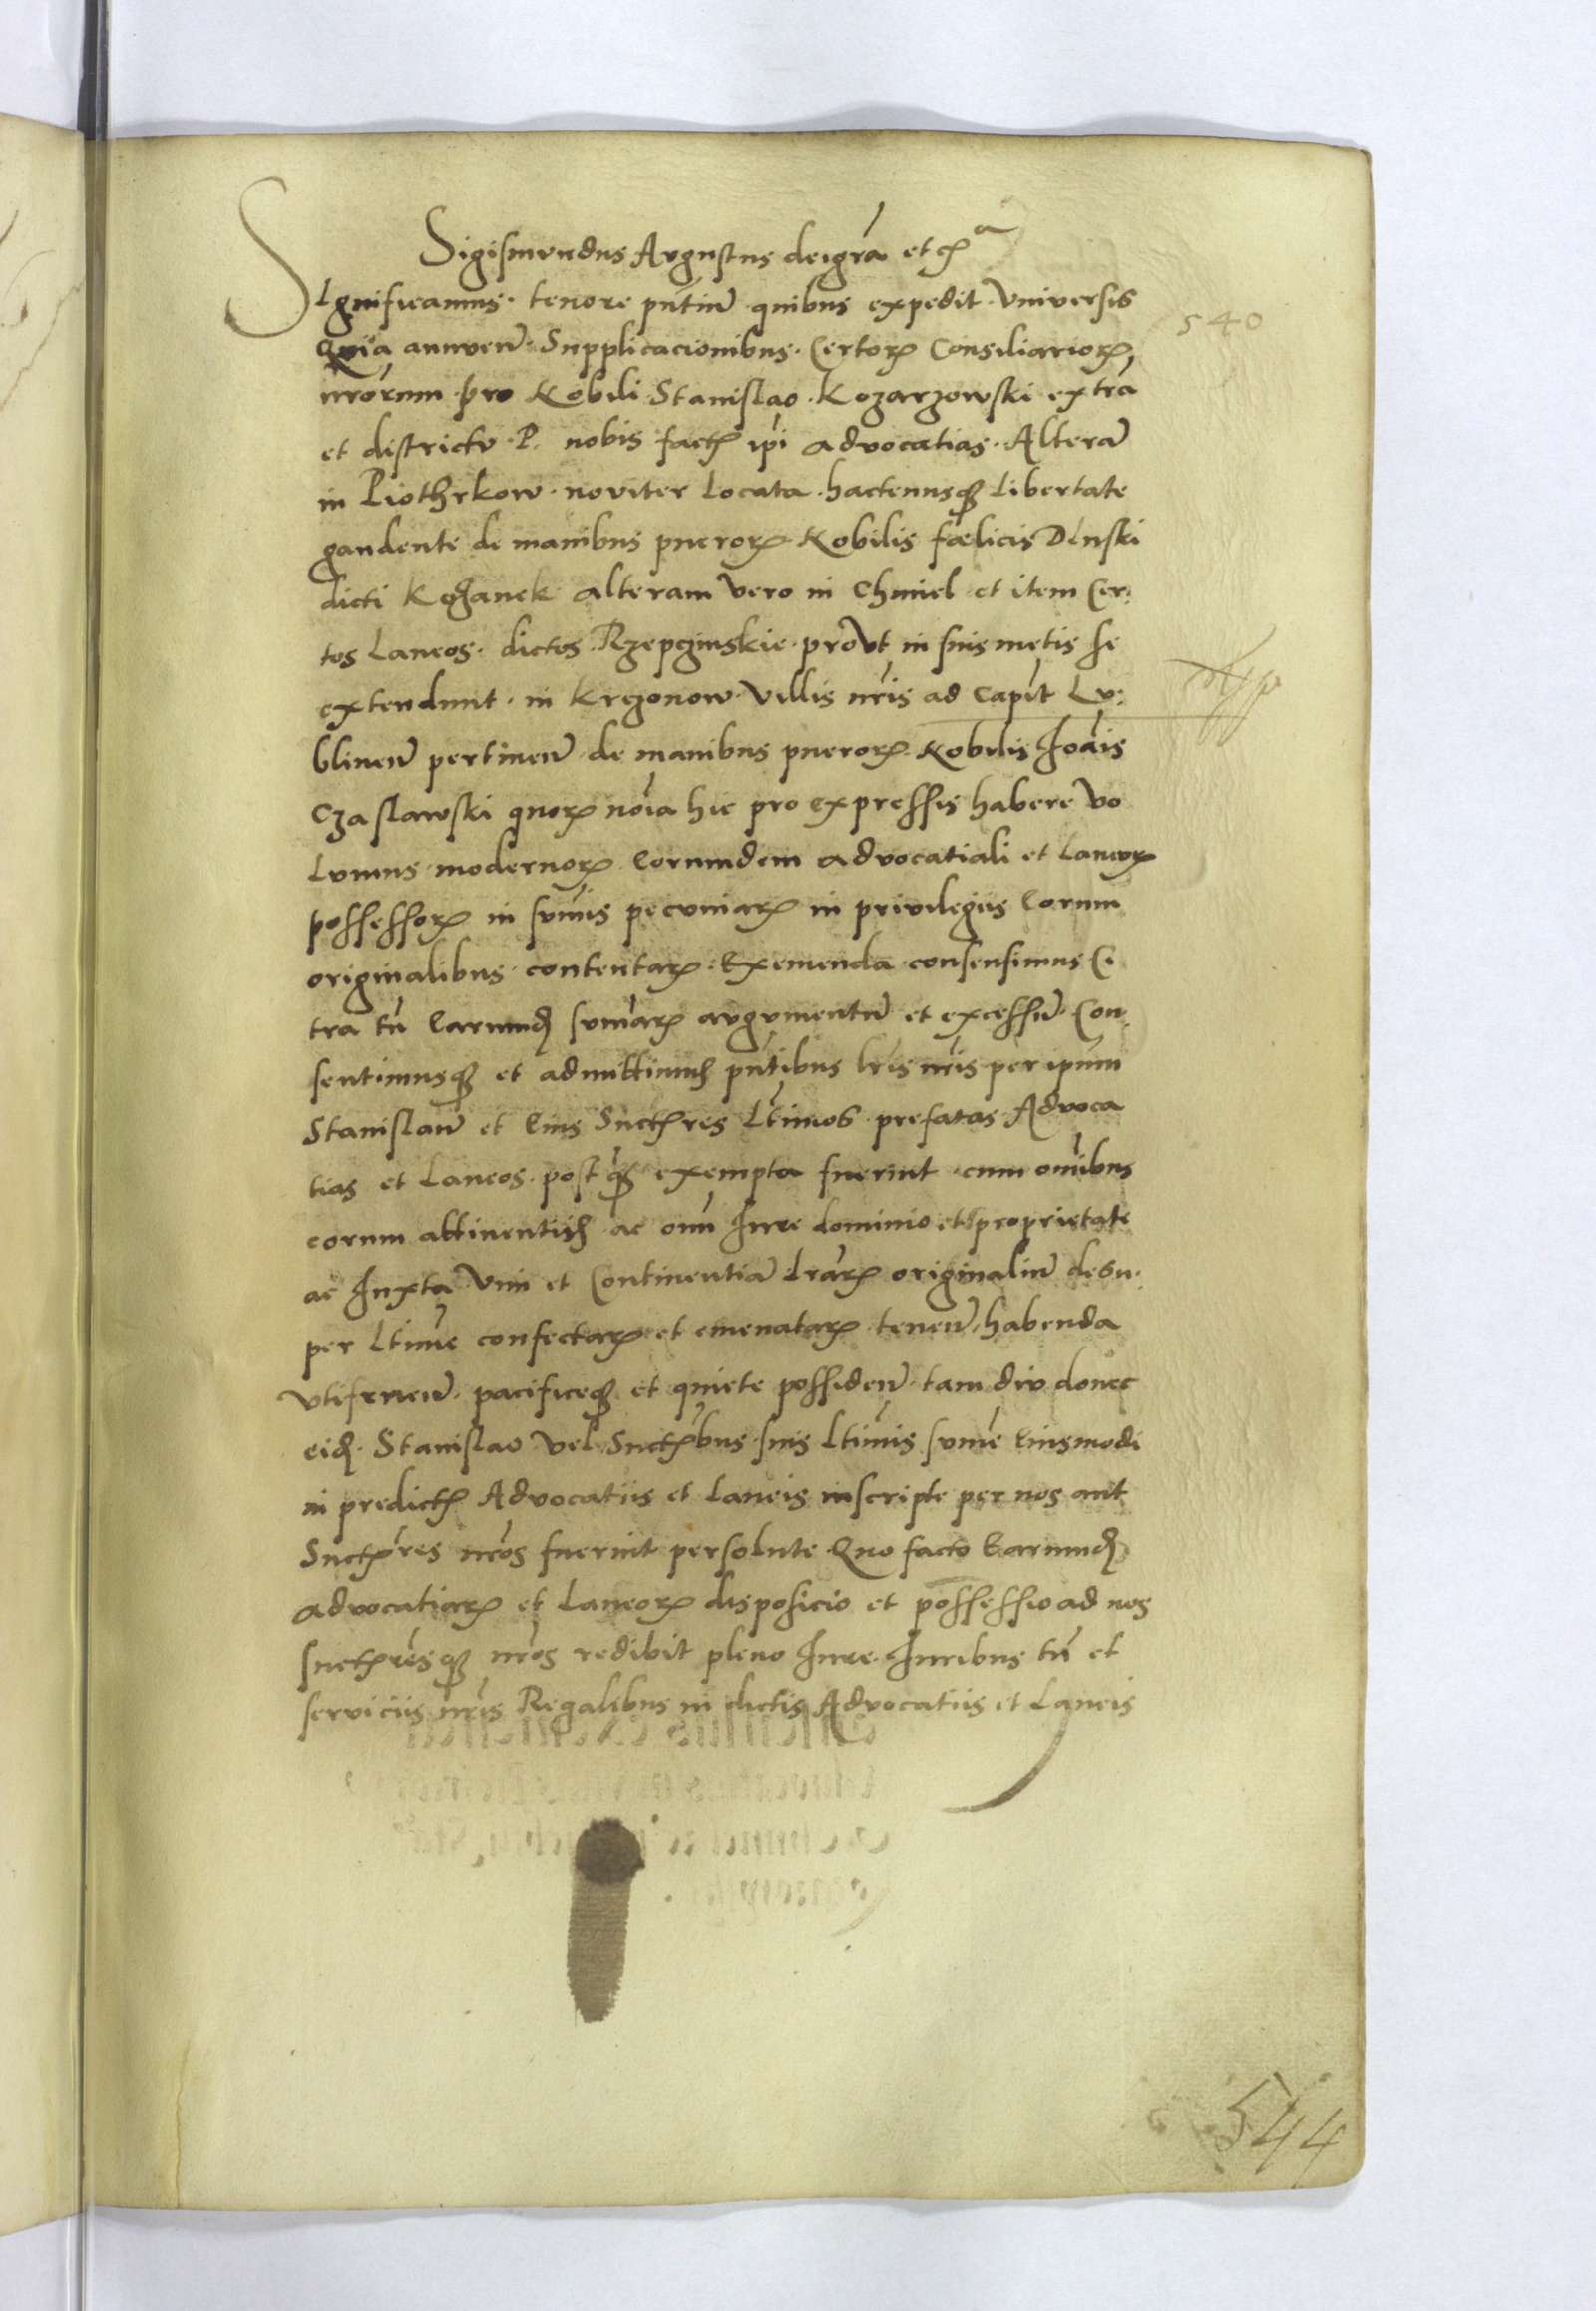 Sigismundus Augustus dei gr̃a etcᵃ
SIgnificamus. tenore pñtiũ quibus expedit Vniversis
540
Quia annuen̄. Supplicacionibus. Certorꝝ Consiliariorꝝ
nr̃orum pro Nobili Stanislao. Kozarzowski ex tr̃a
et districtu P. nobis factꝭ ip̃i advocatias. Alterã
in Piothrkow. noviter locata. hactenusqꝫ libertate
gaudente de manibus puerorꝝ Nobilis fœlicis Denski
dicti Kozanek alteram vero in Chmiel et item Cer:
tos Laneos. dictos. Rzepczinskie. prout in suis metis se
extendunt. in Krczonow. Villis nr̃is ad Capit̃ Lu:
blinen̄ pertinen̄ de manibus puerorꝝ Nobilis Joãis
Czaslawski quorꝝ nõia hic pro expressis habere vo
lumus modernorꝝ Eorumdem advocatiali et laneorꝝ
possessorꝝ in sum̃is pecuniarꝝ in privilegiis Eorum
originalibus contentarꝝ. Exemenda consensimus Ci
tra tñ Earumdꝫ sum̃arꝝ augumentũ et excessũ. Con:
sentimusqꝫ et admittimꝰ pñtibus lr̃is nr̃is per ip̃um
Stanislaũ et Eius Succꝭres Ltĩmos. prefatas Advoca
tias et Laneos. post qꝫ exempta fuerint cum om̃ibus
eorum attinentiiꝭ ac om̃i Jure dominio et proprietate
ac Juxta vim et Continentiã lr̃arꝝ originaliũ desu.
per Ltĩme confectarꝝ et emenatarꝝ tenen̄ habenda
utifruen̄. pacificeqꝫ et quiete possiden̄. tam diu donec
eidꝫ. Stanislao vel Succꝭbus suis Ltĩmis sum̃e Eiusmodi
in predictꝭ Advocatiis et laneis inscripte per nos aut
Succꝭres nr̃os fuerint persolute Quo facto Earumdꝫ
advocatiarꝝ et laneorꝝ disposicio et possessio ad nos
succꝭresqꝫ nr̃os redibit pleno Jure. Juribus tñ et
serviciis nr̃is Regalibus in dictis Advocatiis et Laneis
544